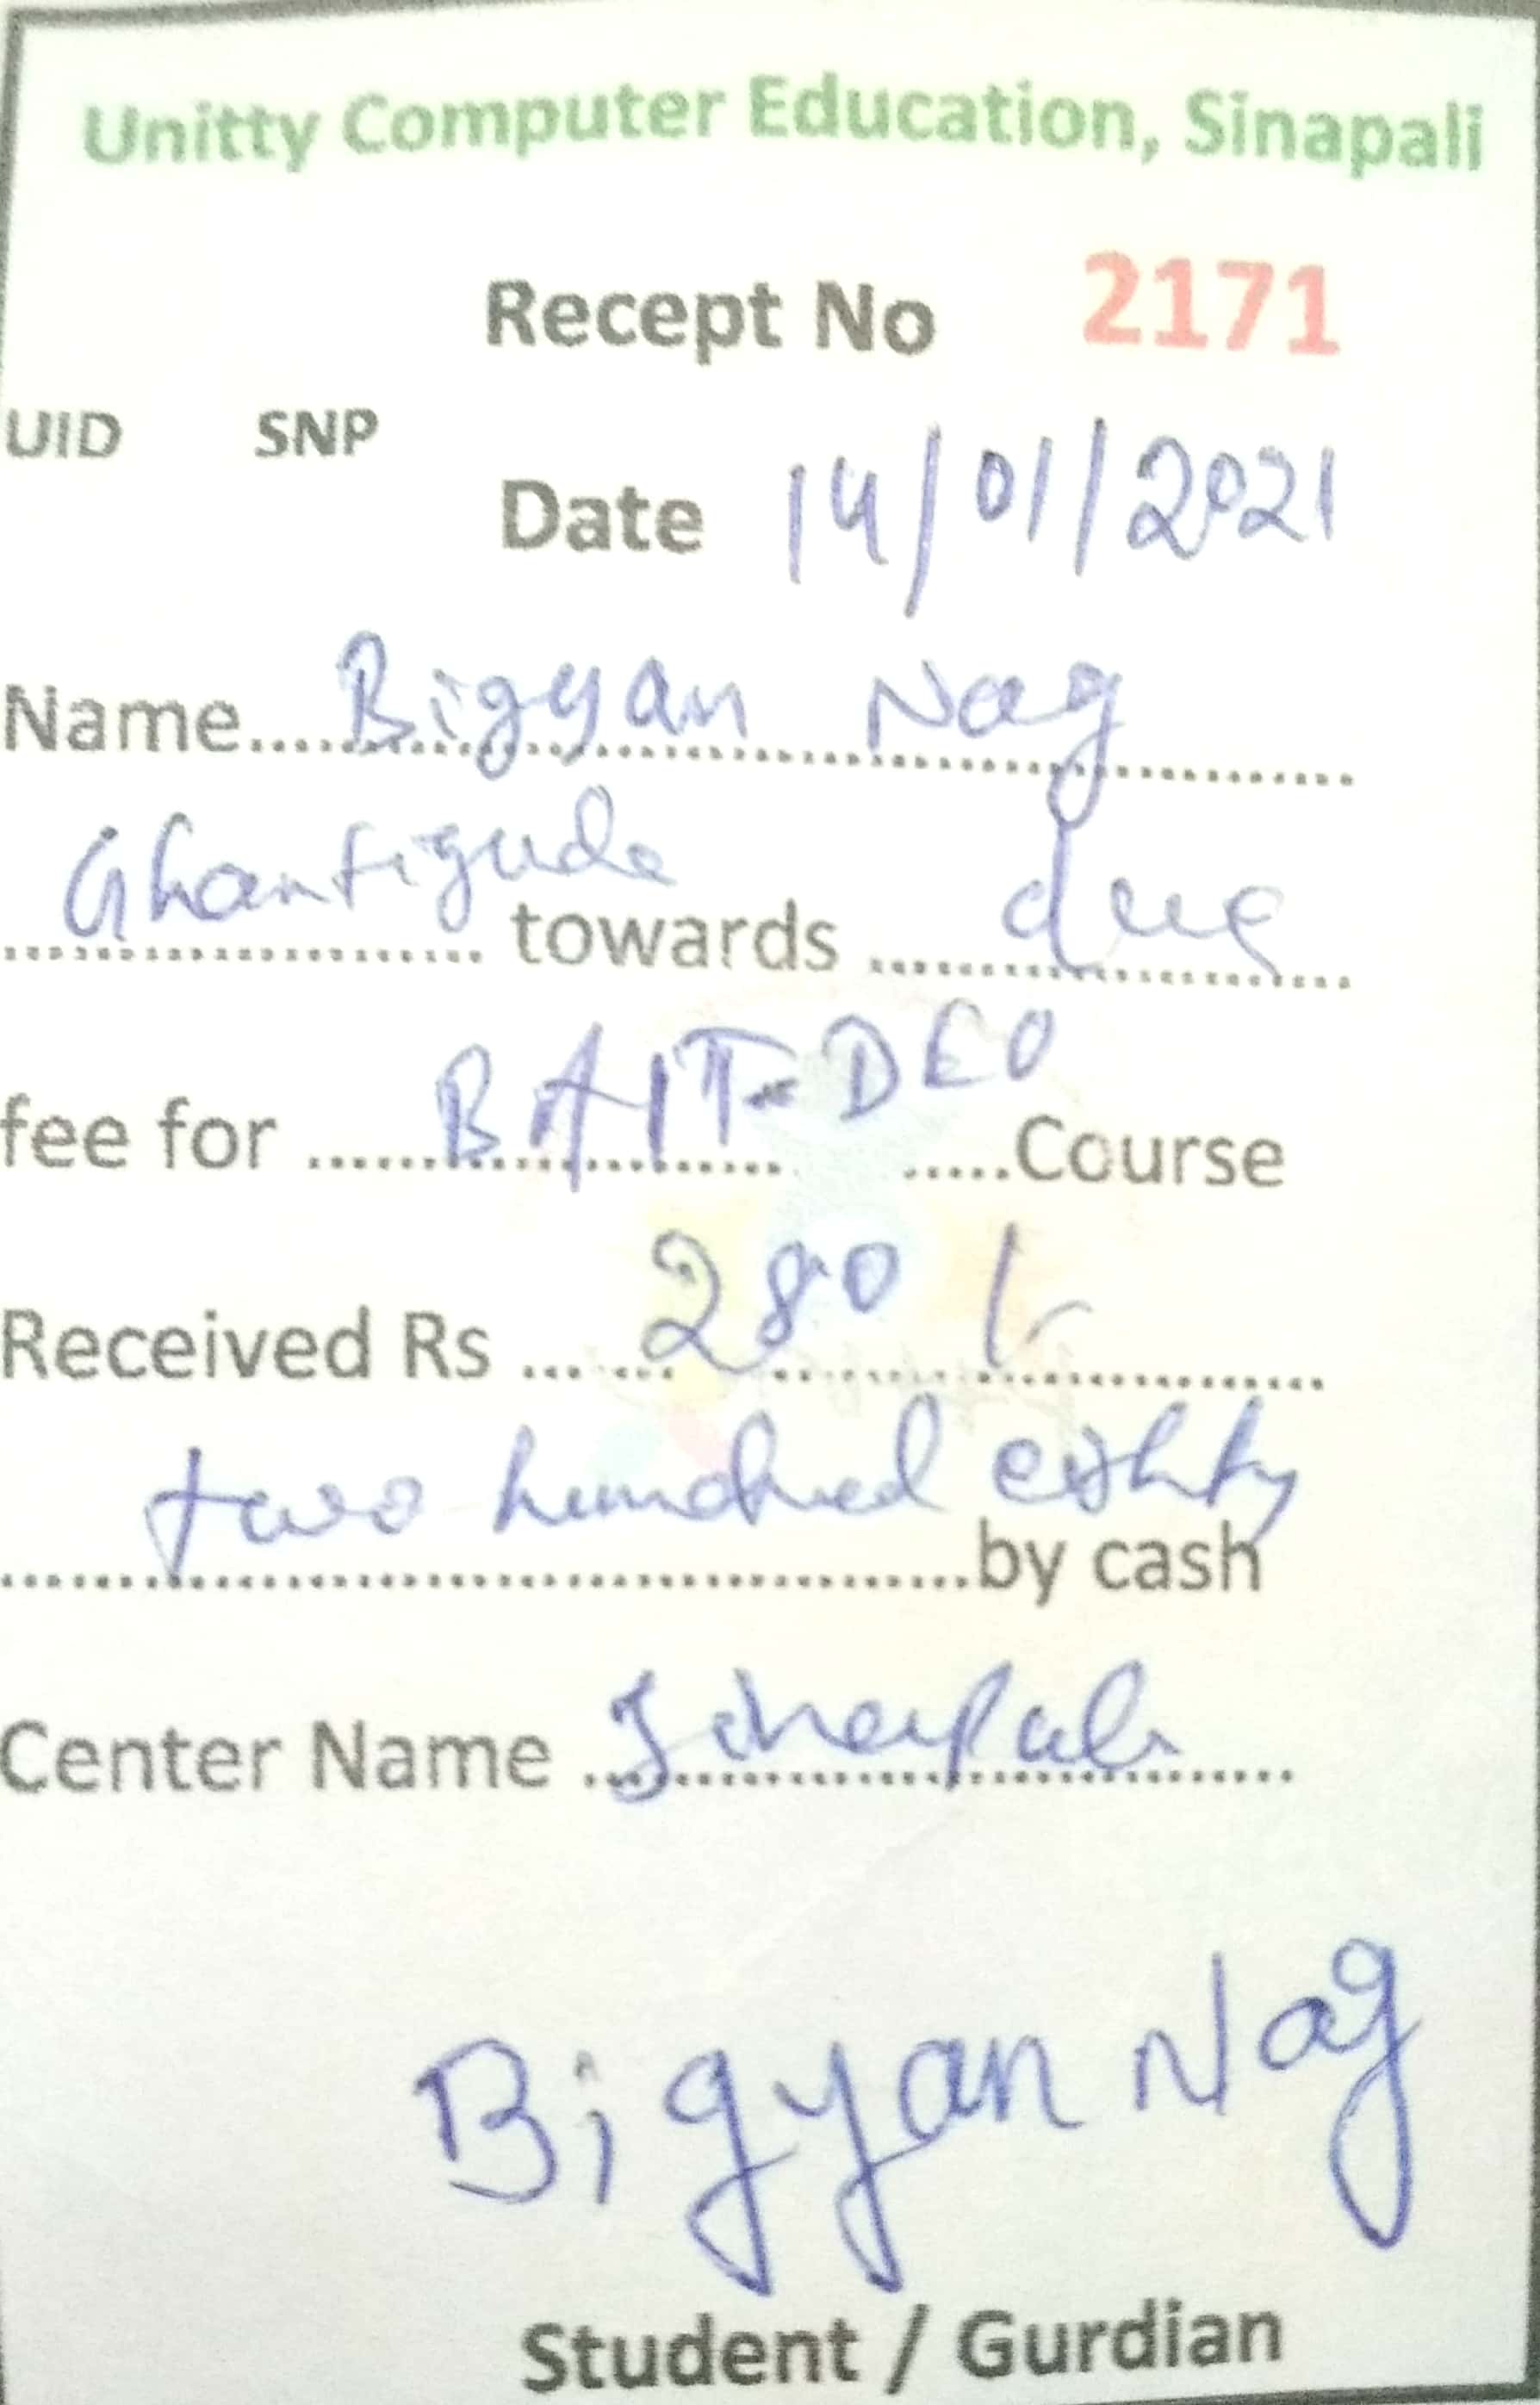 Unitty Computer Education, Sinapali
Recept No 2171
UID SNP
Date 14/01/2021
Name.... Bigyan Nag
Ghantiguda towards due
fee for ...... BAIT-DEO .....Course
Received Rs ... 280 /-
two hundred eighty by cash
Center Name ...
Bigyan Nag
Student / Gurdian